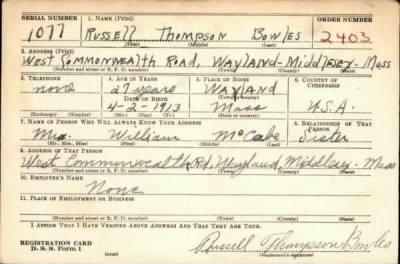 SERIAL NUMBER 1. NAME (Print) ORDER NUMBER
1077 Russell Thompson Bowles 2403
(First) (Middle) (Last)
2. ADDRESS (Print)
West Commonwealth Road, Wayland-Middlesex-Mass
(Number and street or R. F. D. number) (Town) (County) (State)
3. TELEPHONE 4. AGE IN YEARS 5. PLACE OF BIRTH 6. COUNTRY OF CITIZENSHIP
none 27 years Wayland
DATE OF BIRTH (Town or county)
4-2-1913 Mass U.S.A.
(Exchange) (Number) (Mo.) (Day) (Yr.) (State or country)
7. NAME OF PERSON WHO WILL ALWAYS KNOW YOUR ADDRESS 8. RELATIONSHIP OF THAT PERSON
Mrs. William McCabe Sister
(Mr., Mrs., Miss) (First) (Middle) (Last)
9. ADDRESS OF THAT PERSON
West Commonwealth Rd, Wayland, Middlesex - Mass
(Number and street or R. F. D. number) (Town) (County) (State)
10. EMPLOYER'S NAME
None
11. PLACE OF EMPLOYMENT OR BUSINESS
(Number and street or R. F. D. number) (Town) (County) (State)
I AFFIRM THAT I HAVE VERIFIED ABOVE ANSWERS AND THAT THEY ARE TRUE.
REGISTRATION CARD
D. S. S. Form 1 (over) Russell Thompson Bowles
(Registrant's signature)